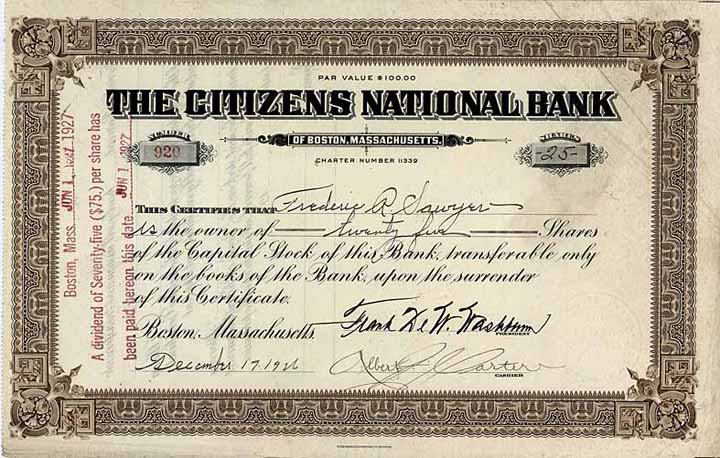 PAR VALUE $100.00
THE CITIZENS NATIONAL BANK
OF BOSTON, MASSACHUSETTS.
CHARTER NUMBER 11339
NUMBER
920
SHARES
-25-
THIS CERTIFIES THAT Frederic R. Sawyer
is the owner of twenty five Shares
of the Capital Stock of this Bank, transferable only
on the books of the Bank, upon the surrender
of this Certificate.
Boston, Massachusetts. Frank De W. Washburn
PRESIDENT
December 17, 1926 Albert Carter
CASHIER
Boston, Mass. JUN 1 1927 1927
A dividend of Seventy-five ($75.) per share has
been paid hereon this date JUN 1 1927